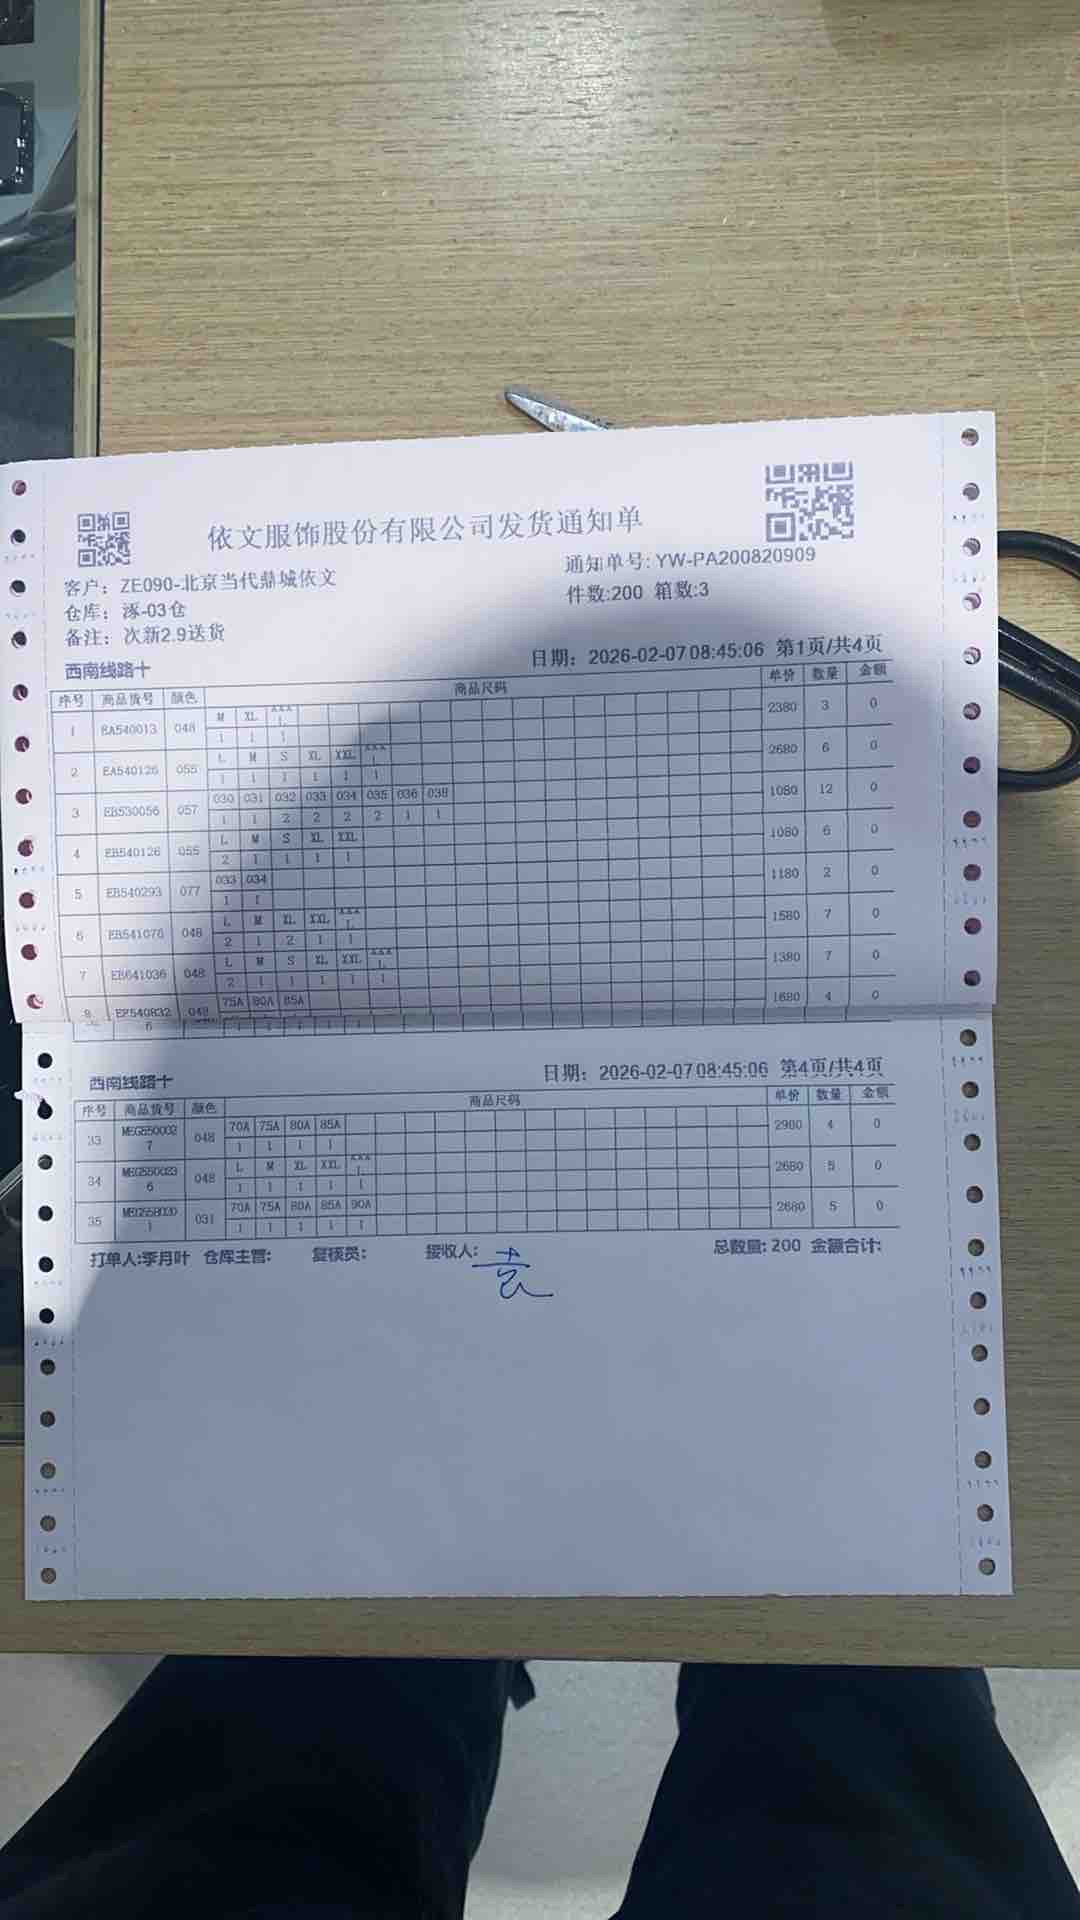 依文服饰股份有限公司发货通知单
客户：ZE090-北京当代鼎城依文
通知单号：YW-PA200820909
仓库：涿-03仓
件数:200 箱数:3
备注：次新2.9送货
西南线路十
日期：2026-02-07 08:45:06 第1页/共4页
序号 商品货号 颜色 商品尺码 单价 数量 金额
1 EA540013 048 M XL XXXL 2380 3 0
1 1 1
2 EA540126 055 L M S XL XXL XXXL 2680 6 0
1 1 1 1 1 1
3 EB530056 057 030 031 032 033 034 035 036 038 1080 12 0
1 1 2 2 2 2 1 1
4 EB540126 055 L M S XL XXL 1080 6 0
2 1 1 1 1
5 EB540293 077 033 034 1180 2 0
1 1
6 EB541076 048 L M XL XXL XXXL 1580 7 0
2 1 2 1 1
7 EB641036 048 L M S XL XXL XXXL 1380 7 0
2 1 1 1 1 1
8 EP540832 048 75A 80A 85A 1680 4 0
6 1 1 1 1 1
西南线路十
日期：2026-02-07 08:45:06 第4页/共4页
序号 商品货号 颜色 商品尺码 单价 数量 金额
33 048 70A 75A 80A 85A 2980 4 0
1 1 1 1
34 048 L M XL XXL XXXL 2680 5 0
1 1 1 1 1
35 031 70A 75A 80A 85A 90A 2680 5 0
1 1 1 1 1
打单人:李月叶 仓库主管: 复核员: 接收人: 袁 总数量: 200 金额合计: